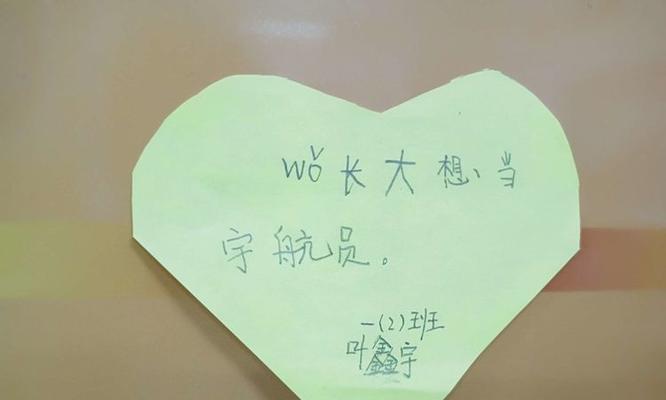 wǒ长大想当
宇航员。
一(2)班
叶鑫宇